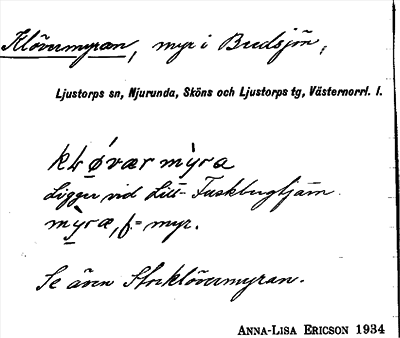 Klövermyran, myr i Bredsjön,
Ljustorps sn, Njurunda, Sköns och Ljustorps tg, Västernorrl. l.
myra
Ligger vid Lill-
myræ, f. = myr.
Se även Storklövermyran.
ANNA-LISA ERICSON 1934